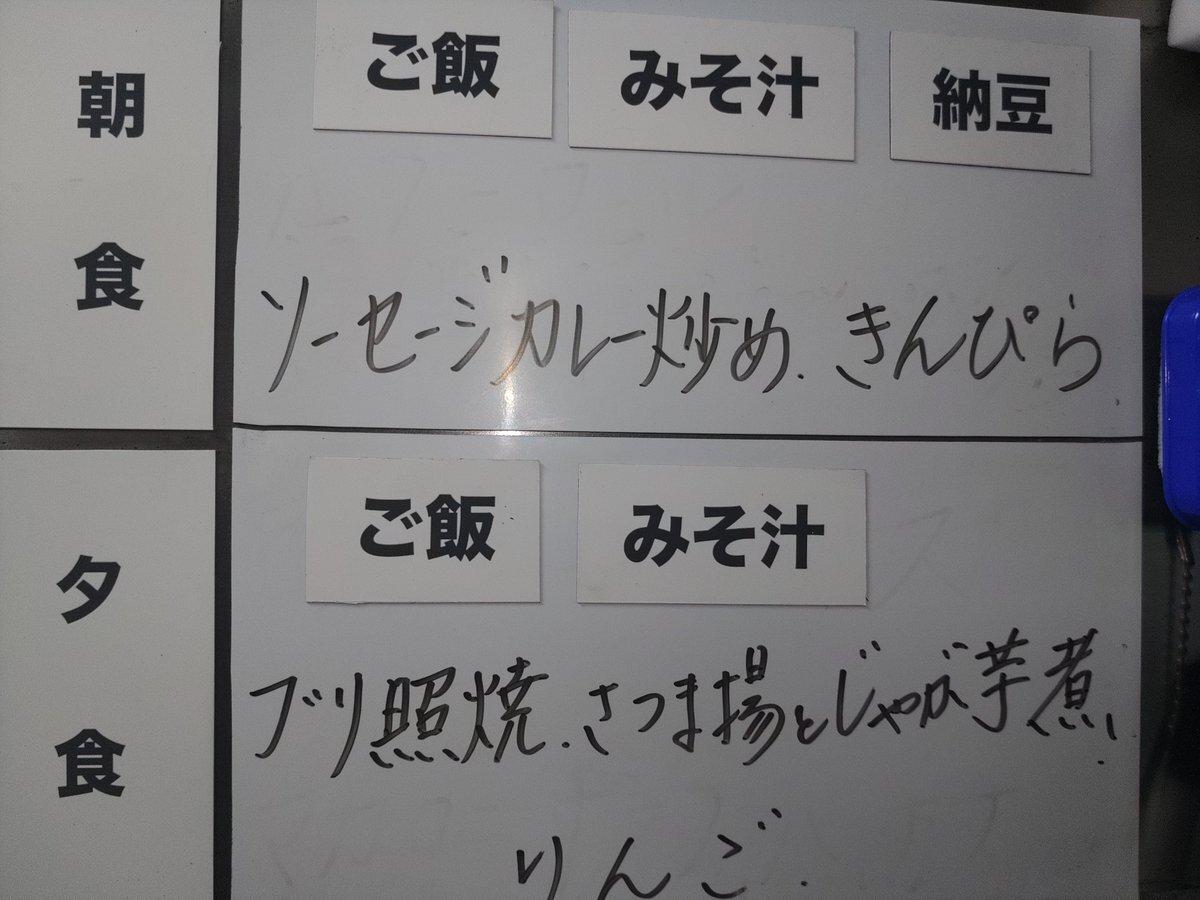 朝食
ご飯 みそ汁 納豆
ソーセージカレー炒め. きんぴら
夕食
ご飯 みそ汁
ブリ照焼. さつま揚とじゃが芋煮.
りんご.